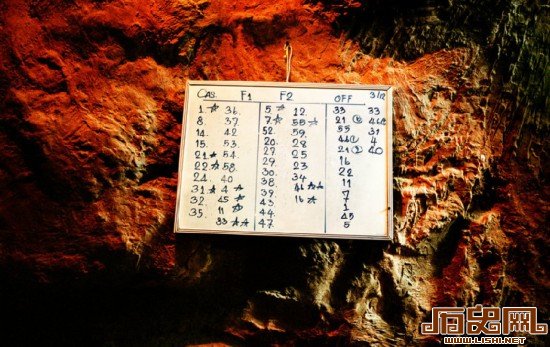 CAS. F1 F2 OFF 3/12
1 ☆ 36. 5 ☆ 12. 33 33
8. 37 7 ☆ 55 ☆ 21
14. 42 52. 59. 55 31
15. 53. 20. 28 4
21 ☆ 54 27. 25 21 40
22 ☆ 58. 29. 23 16
24. 40 30. 34 22
31 ☆ 4 ☆ 38. 46 ☆☆ 11
32. 45 ☆ 39. 16 ☆ 7
35. 11 ☆ 43. 1
33 ☆☆ 44. 45
47. 5
历史网
WWW.LISHI.NET